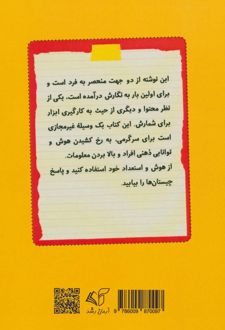 این نوشته از دو جهت منحصر به فرد است و
برای اولین بار به نگارش درآمده است، یکی از
نظر محتوا و دیگری از حیث به کارگیری ابزار
برای شمارش. این کتاب یک وسیلهٔ غیرمجازی
است برای سرگرمی، به رخ کشیدن هوش و
توانایی ذهنی افراد و بالا بردن معلومات.
از هوش و استعداد خود استفاده کنید و پاسخ
چیستان‌ها را بیابید.
آرمان رشد
9 786009 870097